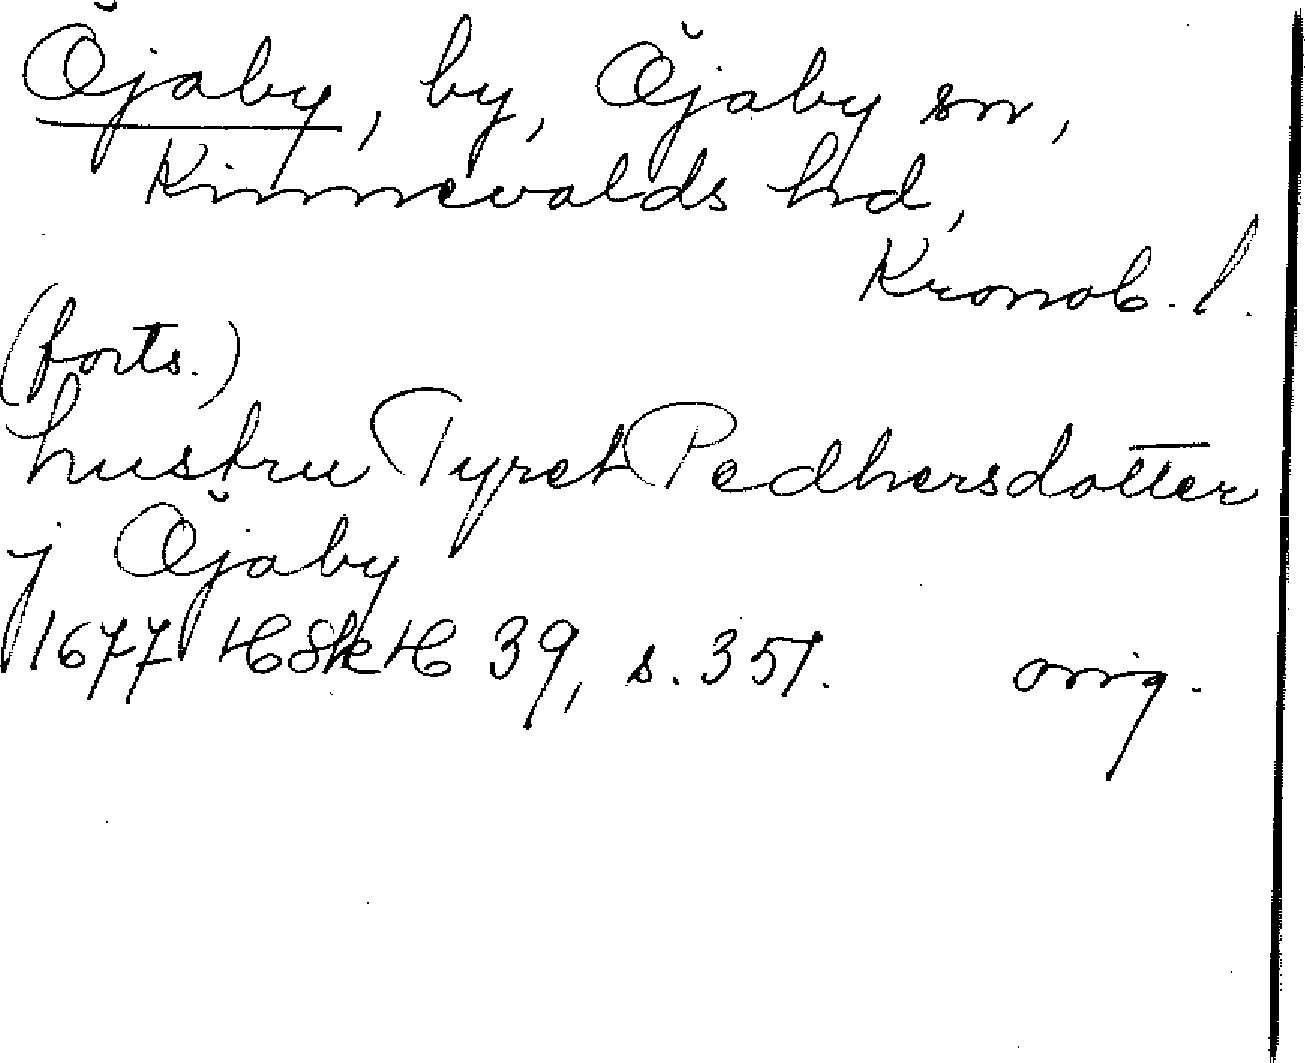 Öjaby, by, Öjaby sn,
Kinnevalds hd,
Kronob. l.
(forts.)
hustru Tyret Pedhersdotter
j Öjaby
1677 HSkH 39, s. 357. orig.